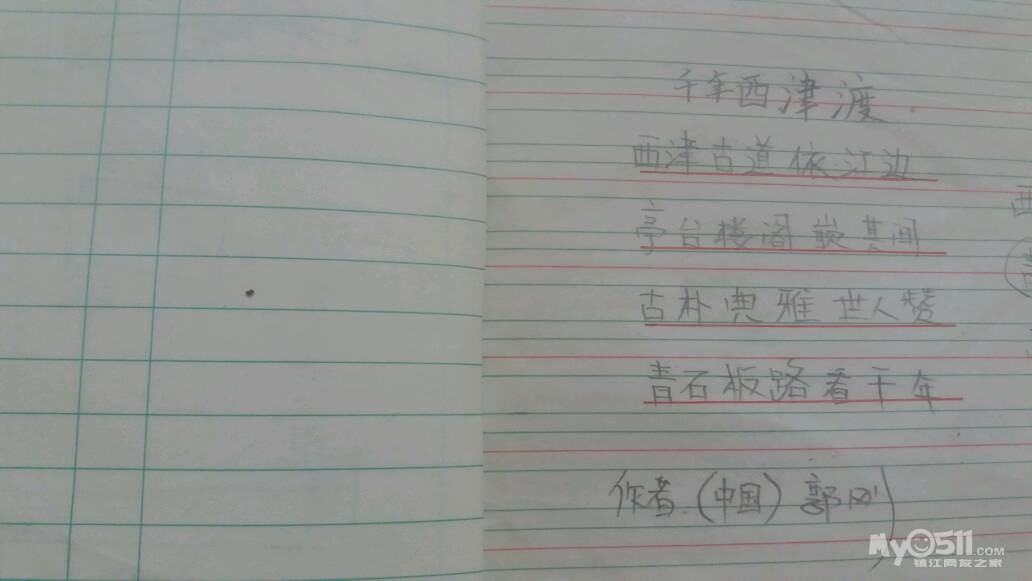 千年西津渡
西津古道依江边
亭台楼阁嵌其间
古朴典雅世人赞
青石板路看千年
作者(中国)郭刚
西
MyO511.COM
镇江网友之家